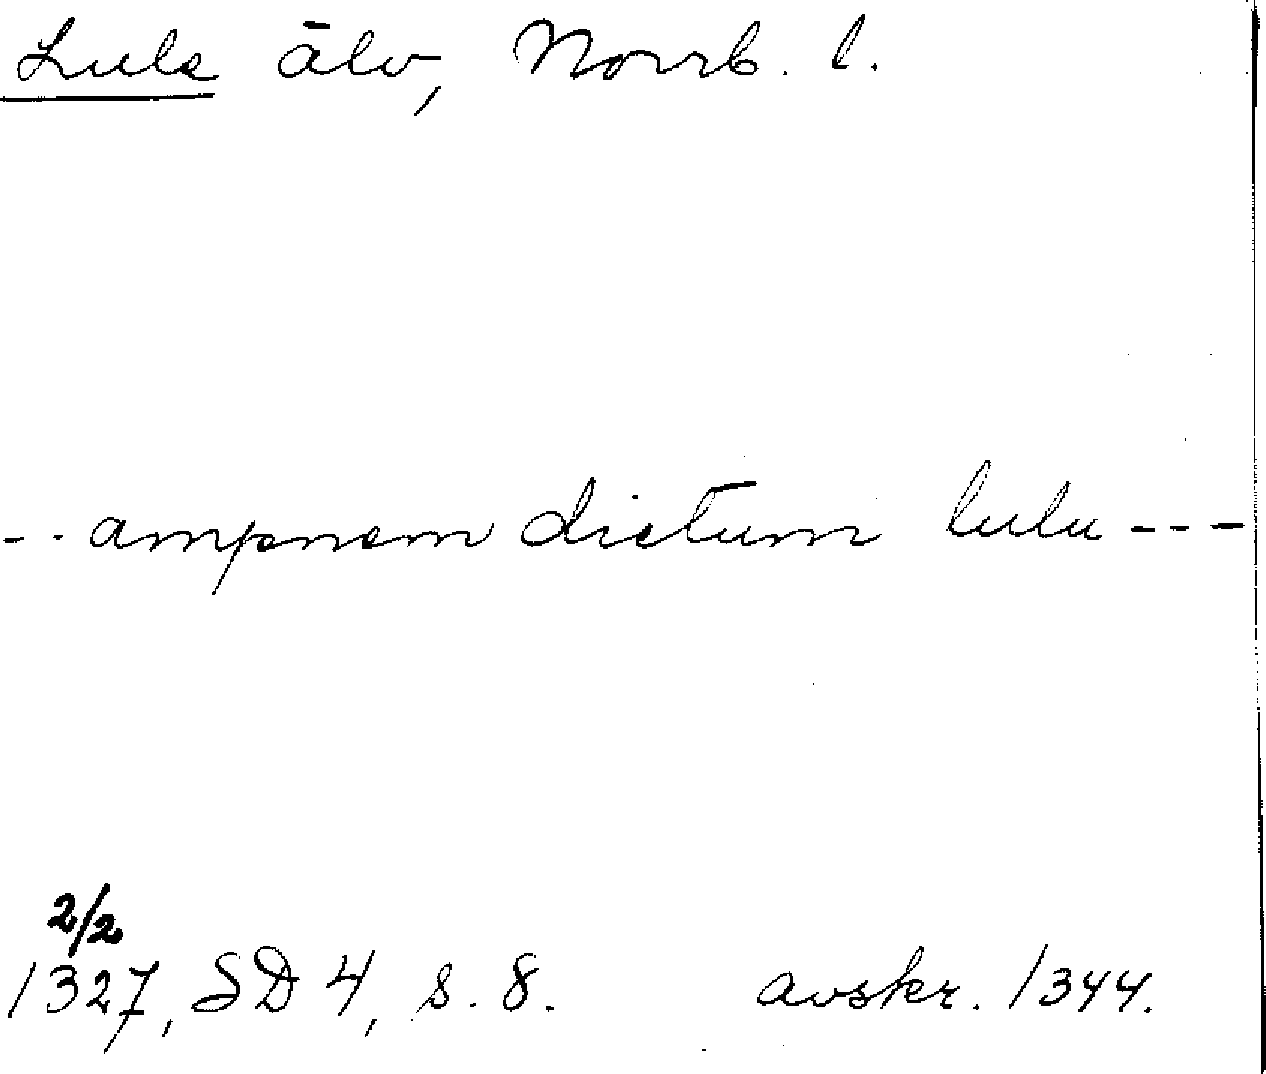 Lule älv, Norrb. l.
-- ampnem dictum lulu ---
2/2
1327, SD 4, s. 8. avskr. 1344.